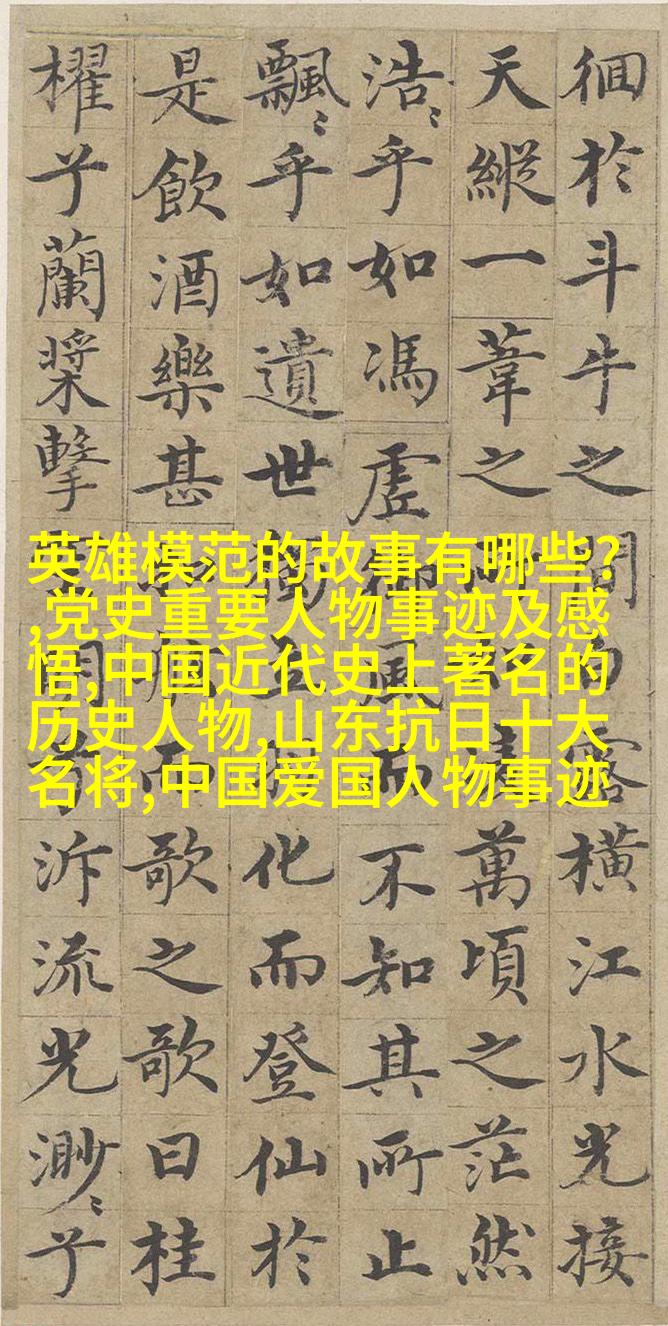 徊於斗牛之間白露橫江水光接
天縱一葦之所如凌萬頃之茫然
浩〻乎如馮虛御風而不知其所止
飄〻乎如遺世獨立羽化而登仙於
是飲酒樂甚而歌之歌曰桂
櫂兮蘭槳擊明兮泝流光渺〻兮
英雄模范的故事有哪些?
,党史重要人物事迹及感
悟,中国近代史上著名的
历史人物,山东抗日十大
名将,中国爱国人物事迹